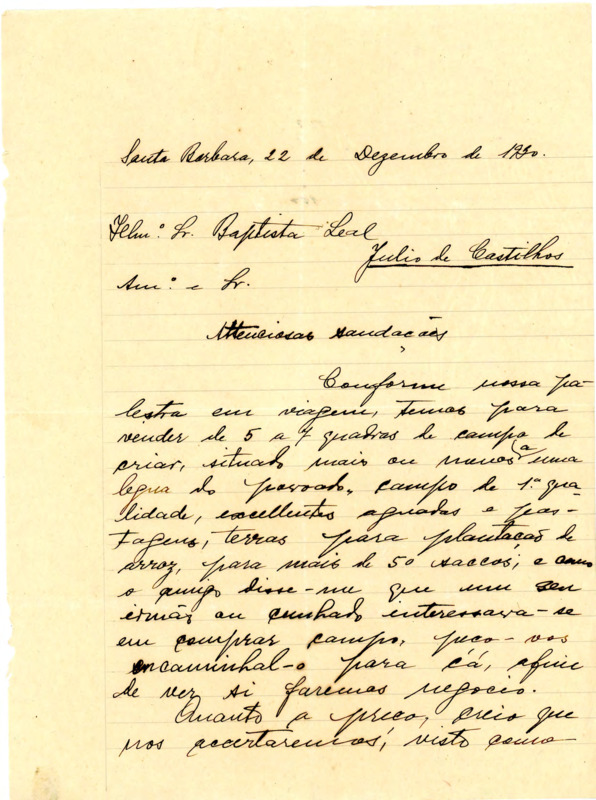 Santa Barbara, 22 de Dezembro de 1930.
Illmº. Sr. Baptista Leal
Julio de Castilhos
Amº. e Sr.
Attenciosas saudações
Conforme nossa pa-
lestra em viagem, temos para
vender de 5 a 7 quadras de campo de
criar, situado mais ou menos a uma
legua do povoado, campo de 1ª qua-
lidade, excellentes aguadas e pas-
tagens, terras para plantação de
arroz, para mais de 50 saccos; e como
o amigo disse-me que um seu
irmão ou cunhado interessava-se
em comprar campo, peço-vos
encaminhal-o para cá, afim
de ver si faremos negocio.
Quanto a preço, creio que
nos acertaremos, visto como